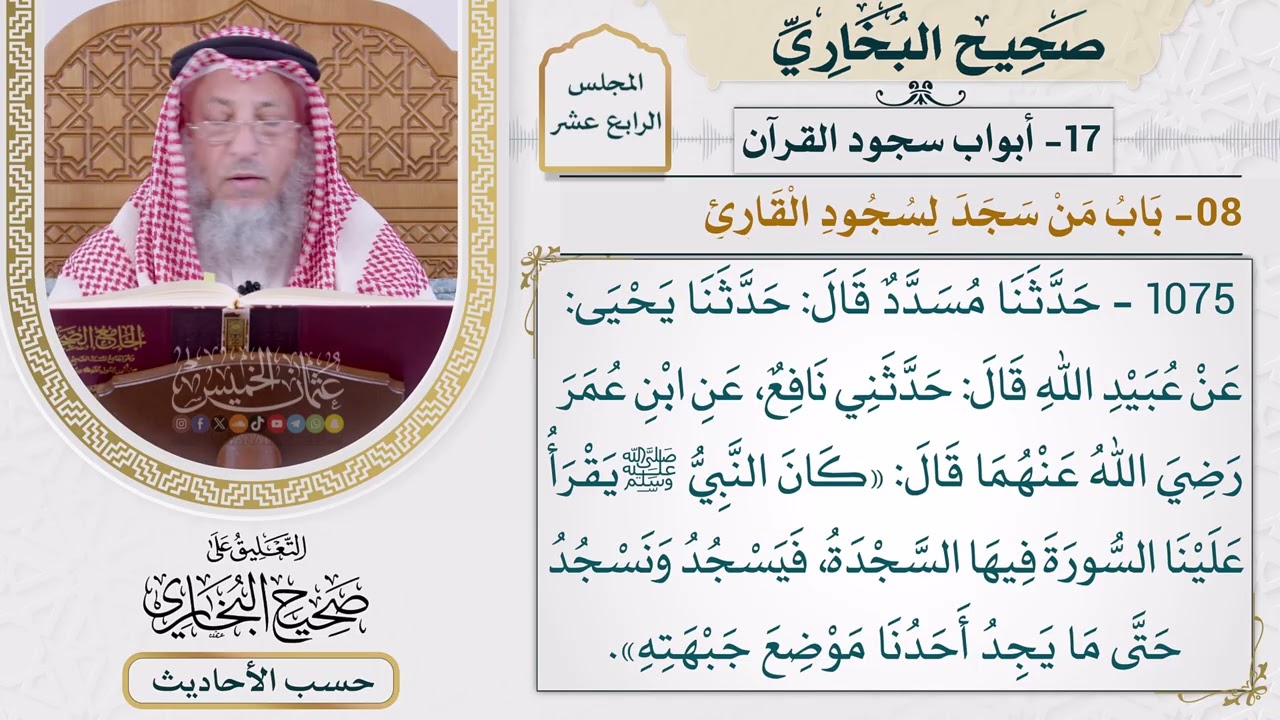 صَحِيح البُخَارِيِّ
المجلس
الرابع عشر
17- أبواب سجود القرآن
08- بَابُ مَنْ سَجَدَ لِسُجُودِ الْقَارِئِ
1075 - حَدَّثَنَا مُسَدَّدٌ قَالَ: حَدَّثَنَا يَحْيَى:
عَنْ عُبَيْدِ اللهِ قَالَ: حَدَّثَنِي نَافِعٌ، عَنِ ابْنِ عُمَرَ
رَضِيَ اللهُ عَنْهُمَا قَالَ: «كَانَ النَّبِيُّ ﷺ يَقْرَأُ
عَلَيْنَا السُّورَةَ فِيهَا السَّجْدَةُ، فَيَسْجُدُ وَنَسْجُدُ
حَتَّى مَا يَجِدُ أَحَدُنَا مَوْضِعَ جَبْهَتِهِ».
عُثمَان الخَمِيس
التَّعْلِيقُ عَلَى
صَحِيحِ البُخَارِي
حسب الأحاديث